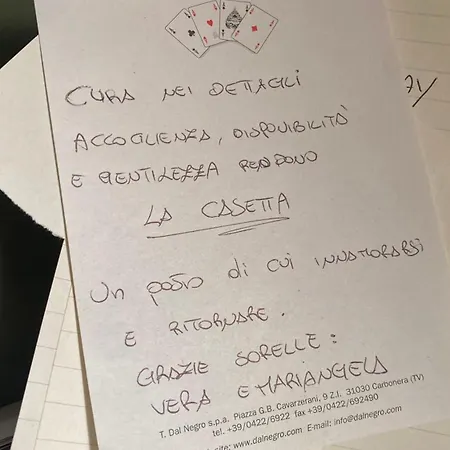 CURA NEI DETTAGLI
ACCOGLIENZA, DISPONIBILITÀ
E GENTILEZZA RENDONO
LA CASETTA
Un posto di cui INNAMORARSI
E RITORNARE.
GRAZIE SORELLE:
VERA E MARIANGELA
T. Dal Negro s.p.a. Piazza G.B. Cavarzerani, 9 Z.I. 31030 Carbonera (TV)
tel. +39/0422/6922 fax +39/0422/692490
site: www.dalnegro.com E-mail: info@dalnegro.com